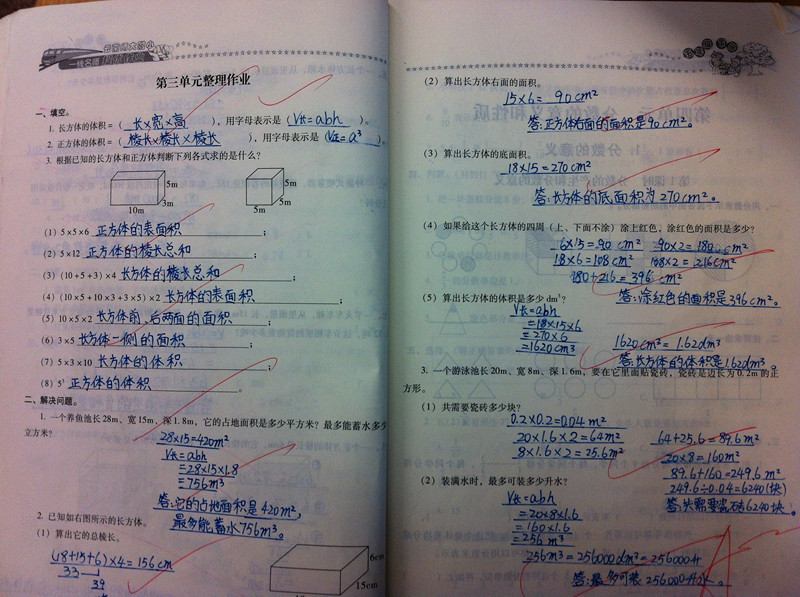 第三单元整理作业
一、填空。
1. 长方体的体积=( 长×宽×高 ),用字母表示是( V长=abh )。
2. 正方体的体积=( 棱长×棱长×棱长 ),用字母表示是( V正=a³ )。
3. 根据已知的长方体和正方体判断下列各式求的是什么?
5m
3m
10m
5m
5m
5m
(1) 5×5×6 正方体的表面积;
(2) 5×12 正方体的棱长总和;
(3) (10+5+3)×4 长方体的棱长总和;
(4) (10×5+10×3+3×5)×2 长方体的表面积;
(5) 10×5×2 长方体前、后两面的面积;
(6) 3×5 长方体一侧的面积;
(7) 5×3×10 长方体的体积;
(8) 5³ 正方体的体积。
二、解决问题。
1. 一个养鱼池长28m、宽15m、深1.8m,它的占地面积是多少平方米?最多能蓄水多少
立方米?
28×15=420m²
V长=abh
=28×15×1.8
=756m³
答:它的占地面积是420m²,
最多能蓄水756m³。
2. 已知如右图所示的长方体。
(1) 算出它的总棱长。
(18+15+6)×4=156cm
33
39
6cm
15cm
(2) 算出长方体右面的面积。
15×6=90cm²
答:正方体右面的面积是90cm²。
(3) 算出长方体的底面积。
18×15=270cm²
答:长方体的底面积为270cm²。
(4) 如果给这个长方体的四周(上、下面不涂)涂上红色,涂红色的面积是多少?
6×15=90cm² 90×2=180cm²
18×6=108cm² 108×2=216cm²
180+216=396cm²
答:涂红色的面积是396cm²。
(5) 算出长方体的体积是多少dm³?
V长=abh
=18×15×6
=270×6
=1620cm³
1620cm³=1.62dm³
答:长方体的体积是1.62dm³。
3. 一个游泳池长20m、宽8m、深1.6m,要在它里面贴瓷砖,瓷砖是边长为0.2m的正
方形。
(1) 共需要瓷砖多少块?
0.2×0.2=0.04m²
20×1.6×2=64m²
8×1.6×2=25.6m²
64+25.6=89.6m²
20×8=160m²
89.6+160=249.6m²
249.6÷0.04=6240(块)
答:共需要瓷砖6240块。
(2) 装满水时,最多可装多少升水?
V长=abh
=20×8×1.6
=160×1.6
=256m³
256m³=256000dm³=256000升
答:最多可装256000升水。